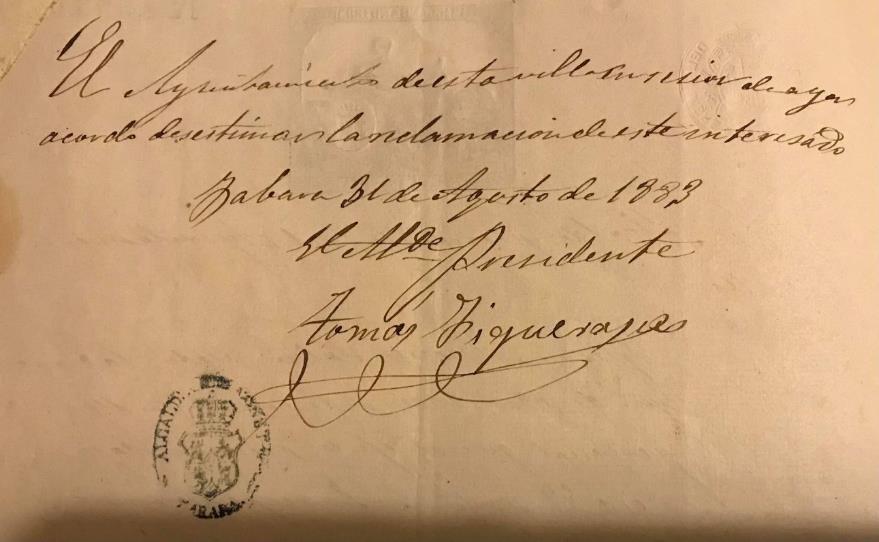 El Ayuntamiento de esta villa en sesion de ayer
acordo desestimar la reclamacion de este interesado
Fabara 31 de Agosto de 1883
El Alcde Presidente
Tomás Figueras
ALCALDIA
FABARA